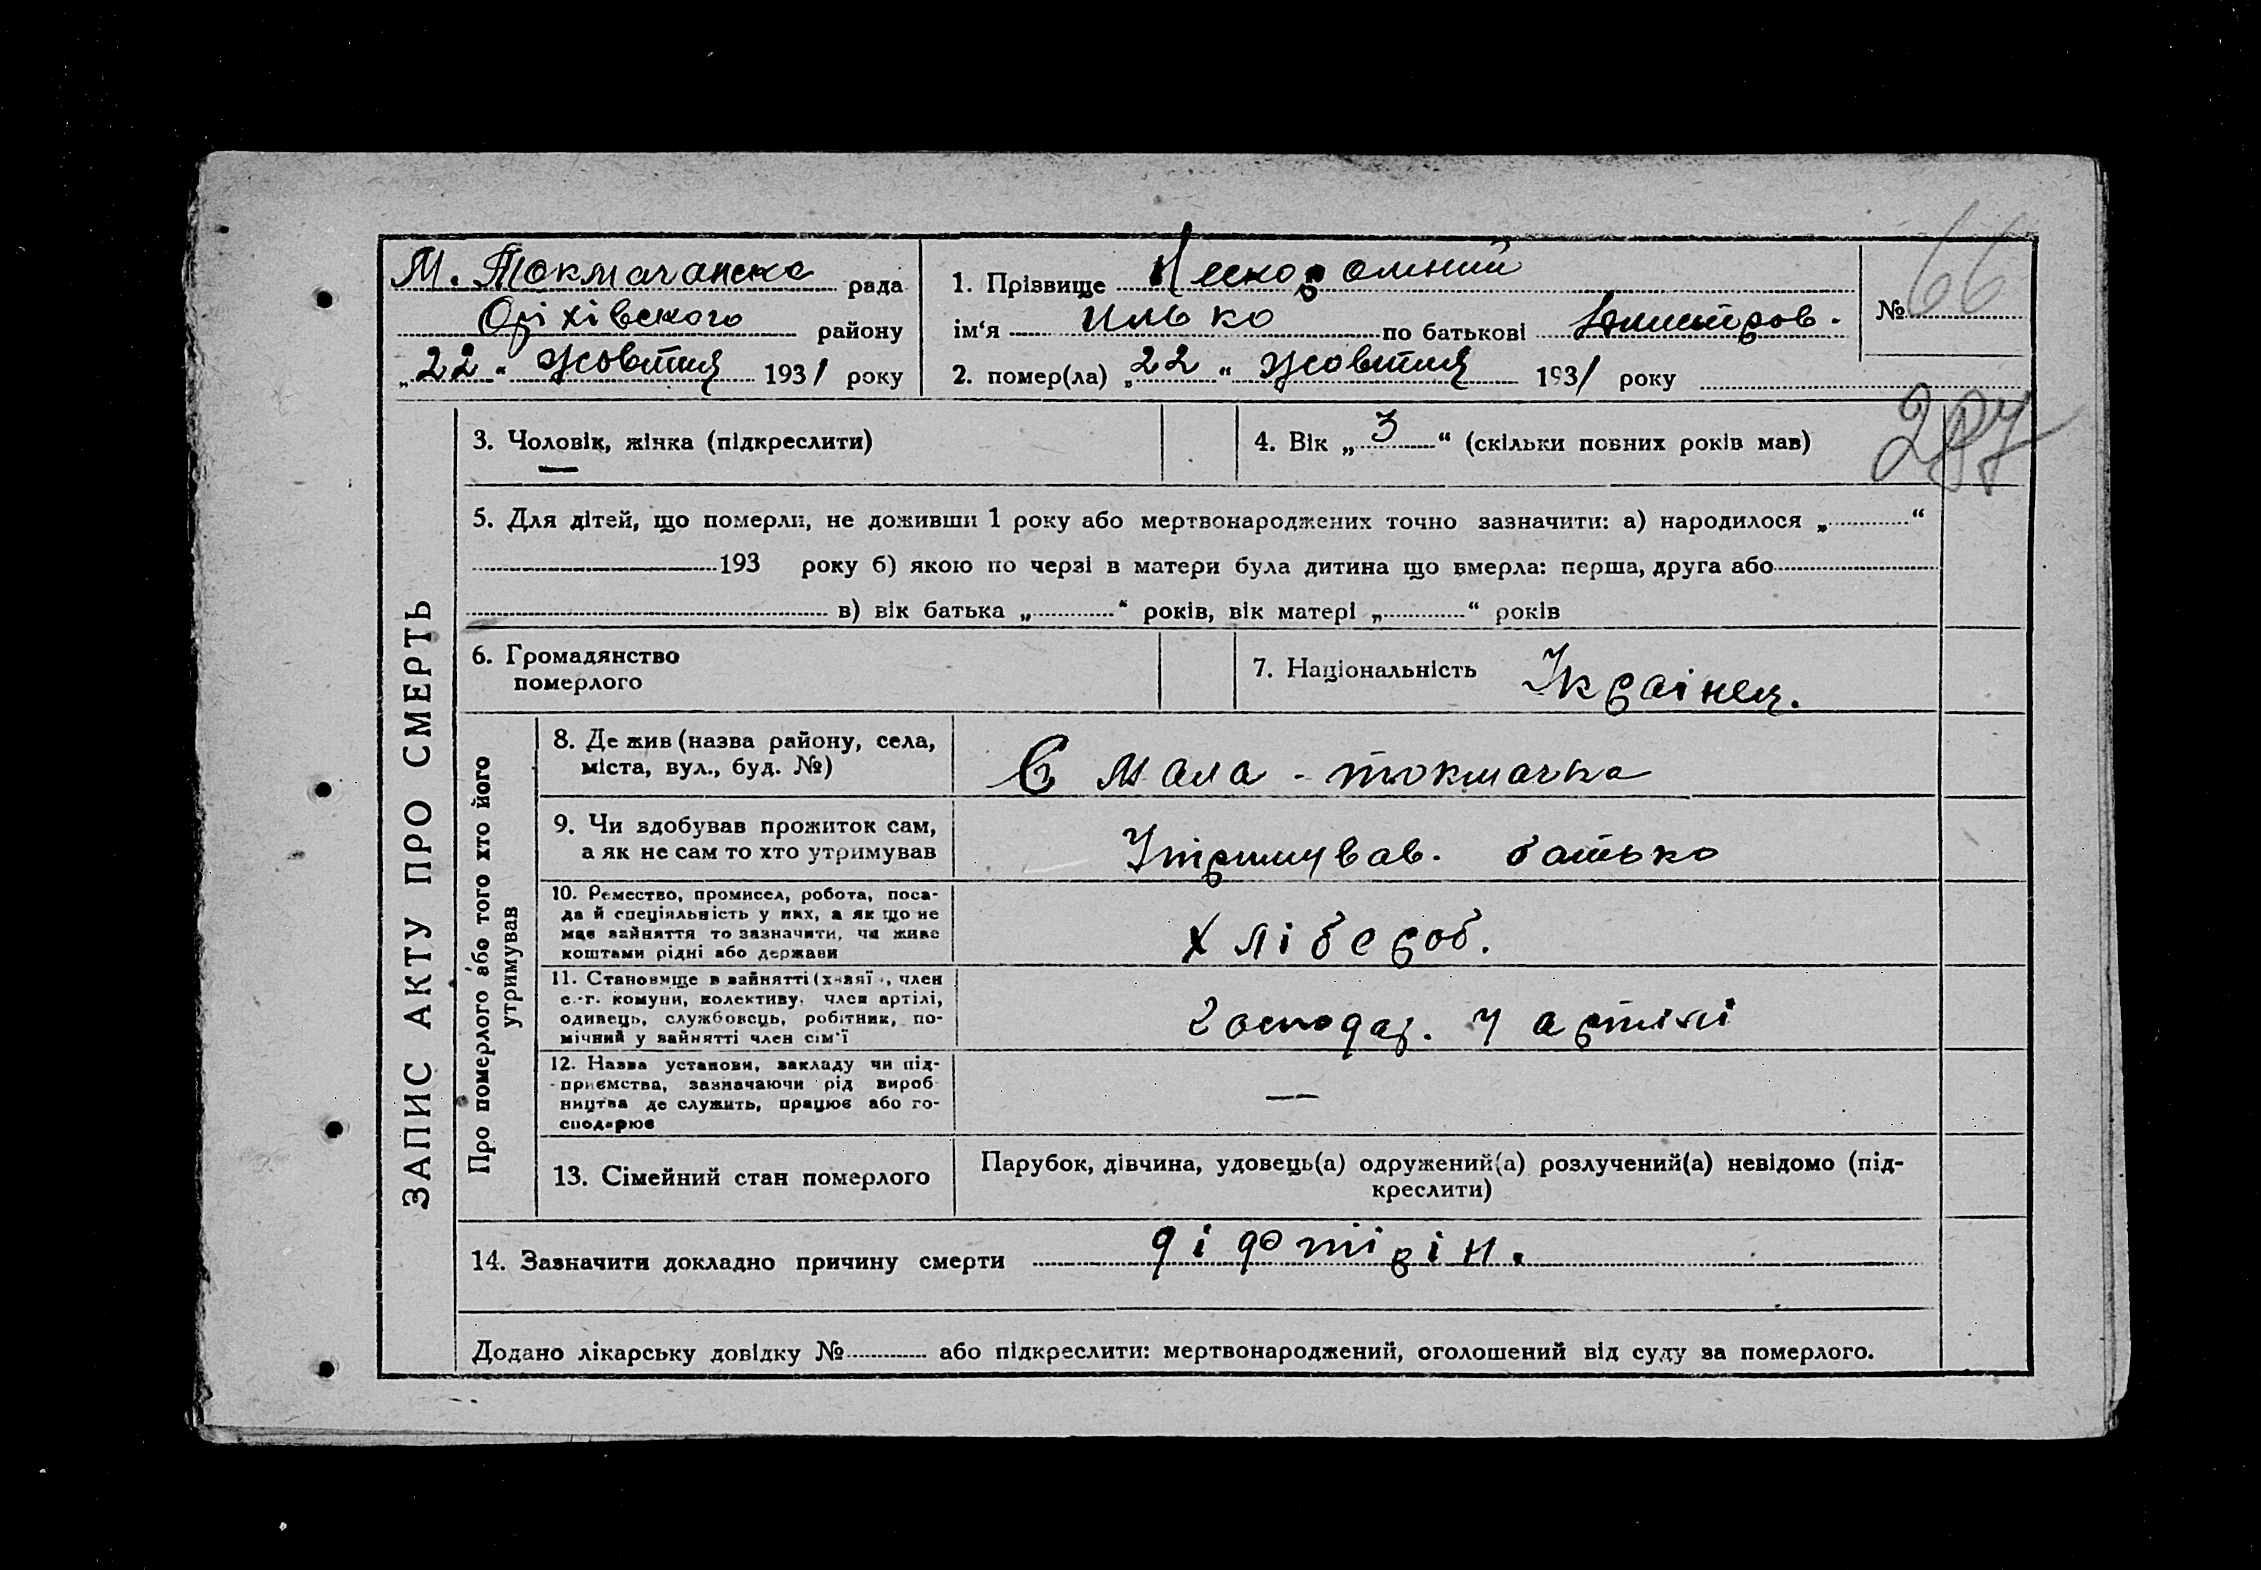 М. Токмачанська рада
Оріхівського району
„22“ Жовтня 1931 року
1. Прізвище Нескоромний
ім‘я Илько по батькові Дмитров.
2. помер(ла) „22“ Жовтня 1931 року
№ 66
287
ЗАПИС АКТУ ПРО СМЕРТЬ
3. Чоловік, жінка (підкреслити)
4. Вік „3“ (скільки повних років мав)
5. Для дітей, що померли, не доживши 1 року або мертвонароджених точно зазначити: а) народилося „ “
193 року б) якою по черзі в матери була дитина що вмерла: перша, друга або
в) вік батька „ “ років, вік матері „ “ років
6. Громадянство
померлого
7. Національність Українец.
Про померлого або того хто його
утримував
8. Де жив (назва району, села,
міста, вул., буд. №)
С Мала - токмачка
9. Чи здобував прожиток сам,
а як не сам то хто утримував
Утримував. батько
10. Ремество, промисел, робота, поса-
да й спеціяльність у них, а як що не
має зайняття то зазначити, чи живе
коштами рідні або держави
Хлібероб.
11. Становище в зайнятті (хазяїн, член
с.-г. комуни, колективу, член артілі,
одивець, службовець, робітник, по-
мічний у зайнятті член сім‘ї
Господар. у артілі
12. Назва установи, закладу чи під-
приємства, зазначаючи рід вироб
ництва де служить, працює або го-
сподарює
—
13. Сімейний стан померлого
Парубок, дівчина, удовець(а) одружений(а) розлучений(а) невідомо (під-
креслити)
14. Зазначити докладно причину смерти діфтірін.
Додано лікарську довідку № або підкреслити: мертвонароджений, оголошений від суду за померлого.